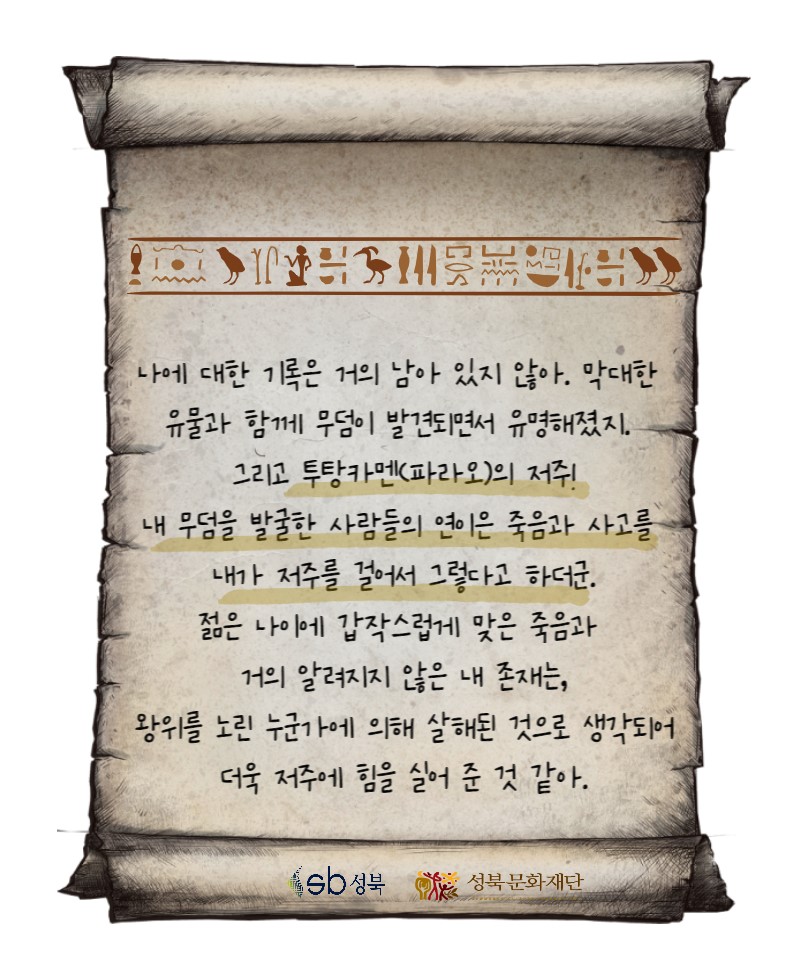 나에 대한 기록은 거의 남아 있지 않아. 막대한
유물과 함께 무덤이 발견되면서 유명해졌지.
그리고 투탕카멘(파라오)의 저주!
내 무덤을 발굴한 사람들의 연이은 죽음과 사고를
내가 저주를 걸어서 그렇다고 하더군.
젊은 나이에 갑작스럽게 맞은 죽음과
거의 알려지지 않은 내 존재는,
왕위를 노린 누군가에 의해 살해된 것으로 생각되어
더욱 저주에 힘을 실어 준 것 같아.
sb 성북 성북문화재단